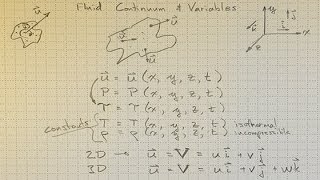 Fluid Continuum & Variables
u⃗
u⃗
z
j⃗
i⃗
x
u⃗ = u⃗ (x, y, z, t)
P = P (x, y, z, t)
T = T (x, y, z, t)
constants T = T (x, y, z, t) isothermal
ρ = ρ (x, y, z, t) incompressible
2D → u⃗ = V = u i⃗ + v j⃗
3D u⃗ = V = u i⃗ + v j⃗ + w k⃗